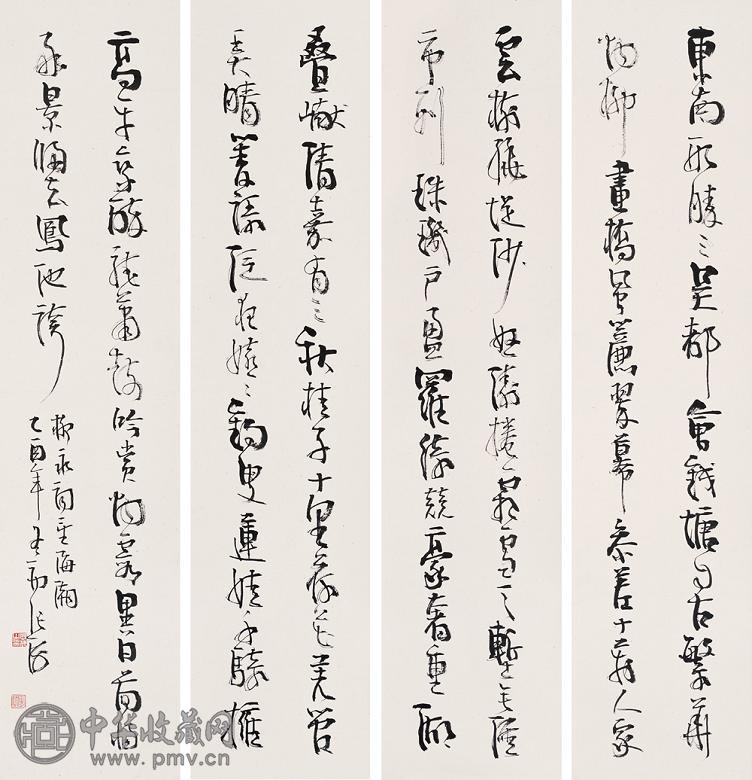 東南形勝三吳都會錢塘自古繁華
煙柳畫橋風簾翠幕參差十萬人家
雲樹繞堤沙怒濤捲霜雪天塹無涯
市列珠璣戶盈羅綺競豪奢重湖
疊巘清嘉有三秋桂子十里荷花羌管
弄晴菱歌泛夜嬉嬉釣叟蓮娃千騎擁
高牙乘醉聽簫鼓吟賞煙霞異日圖將
好景歸去鳳池誇
柳永詞望海潮
乙酉年張海
中华收藏网
www.pmv.cn